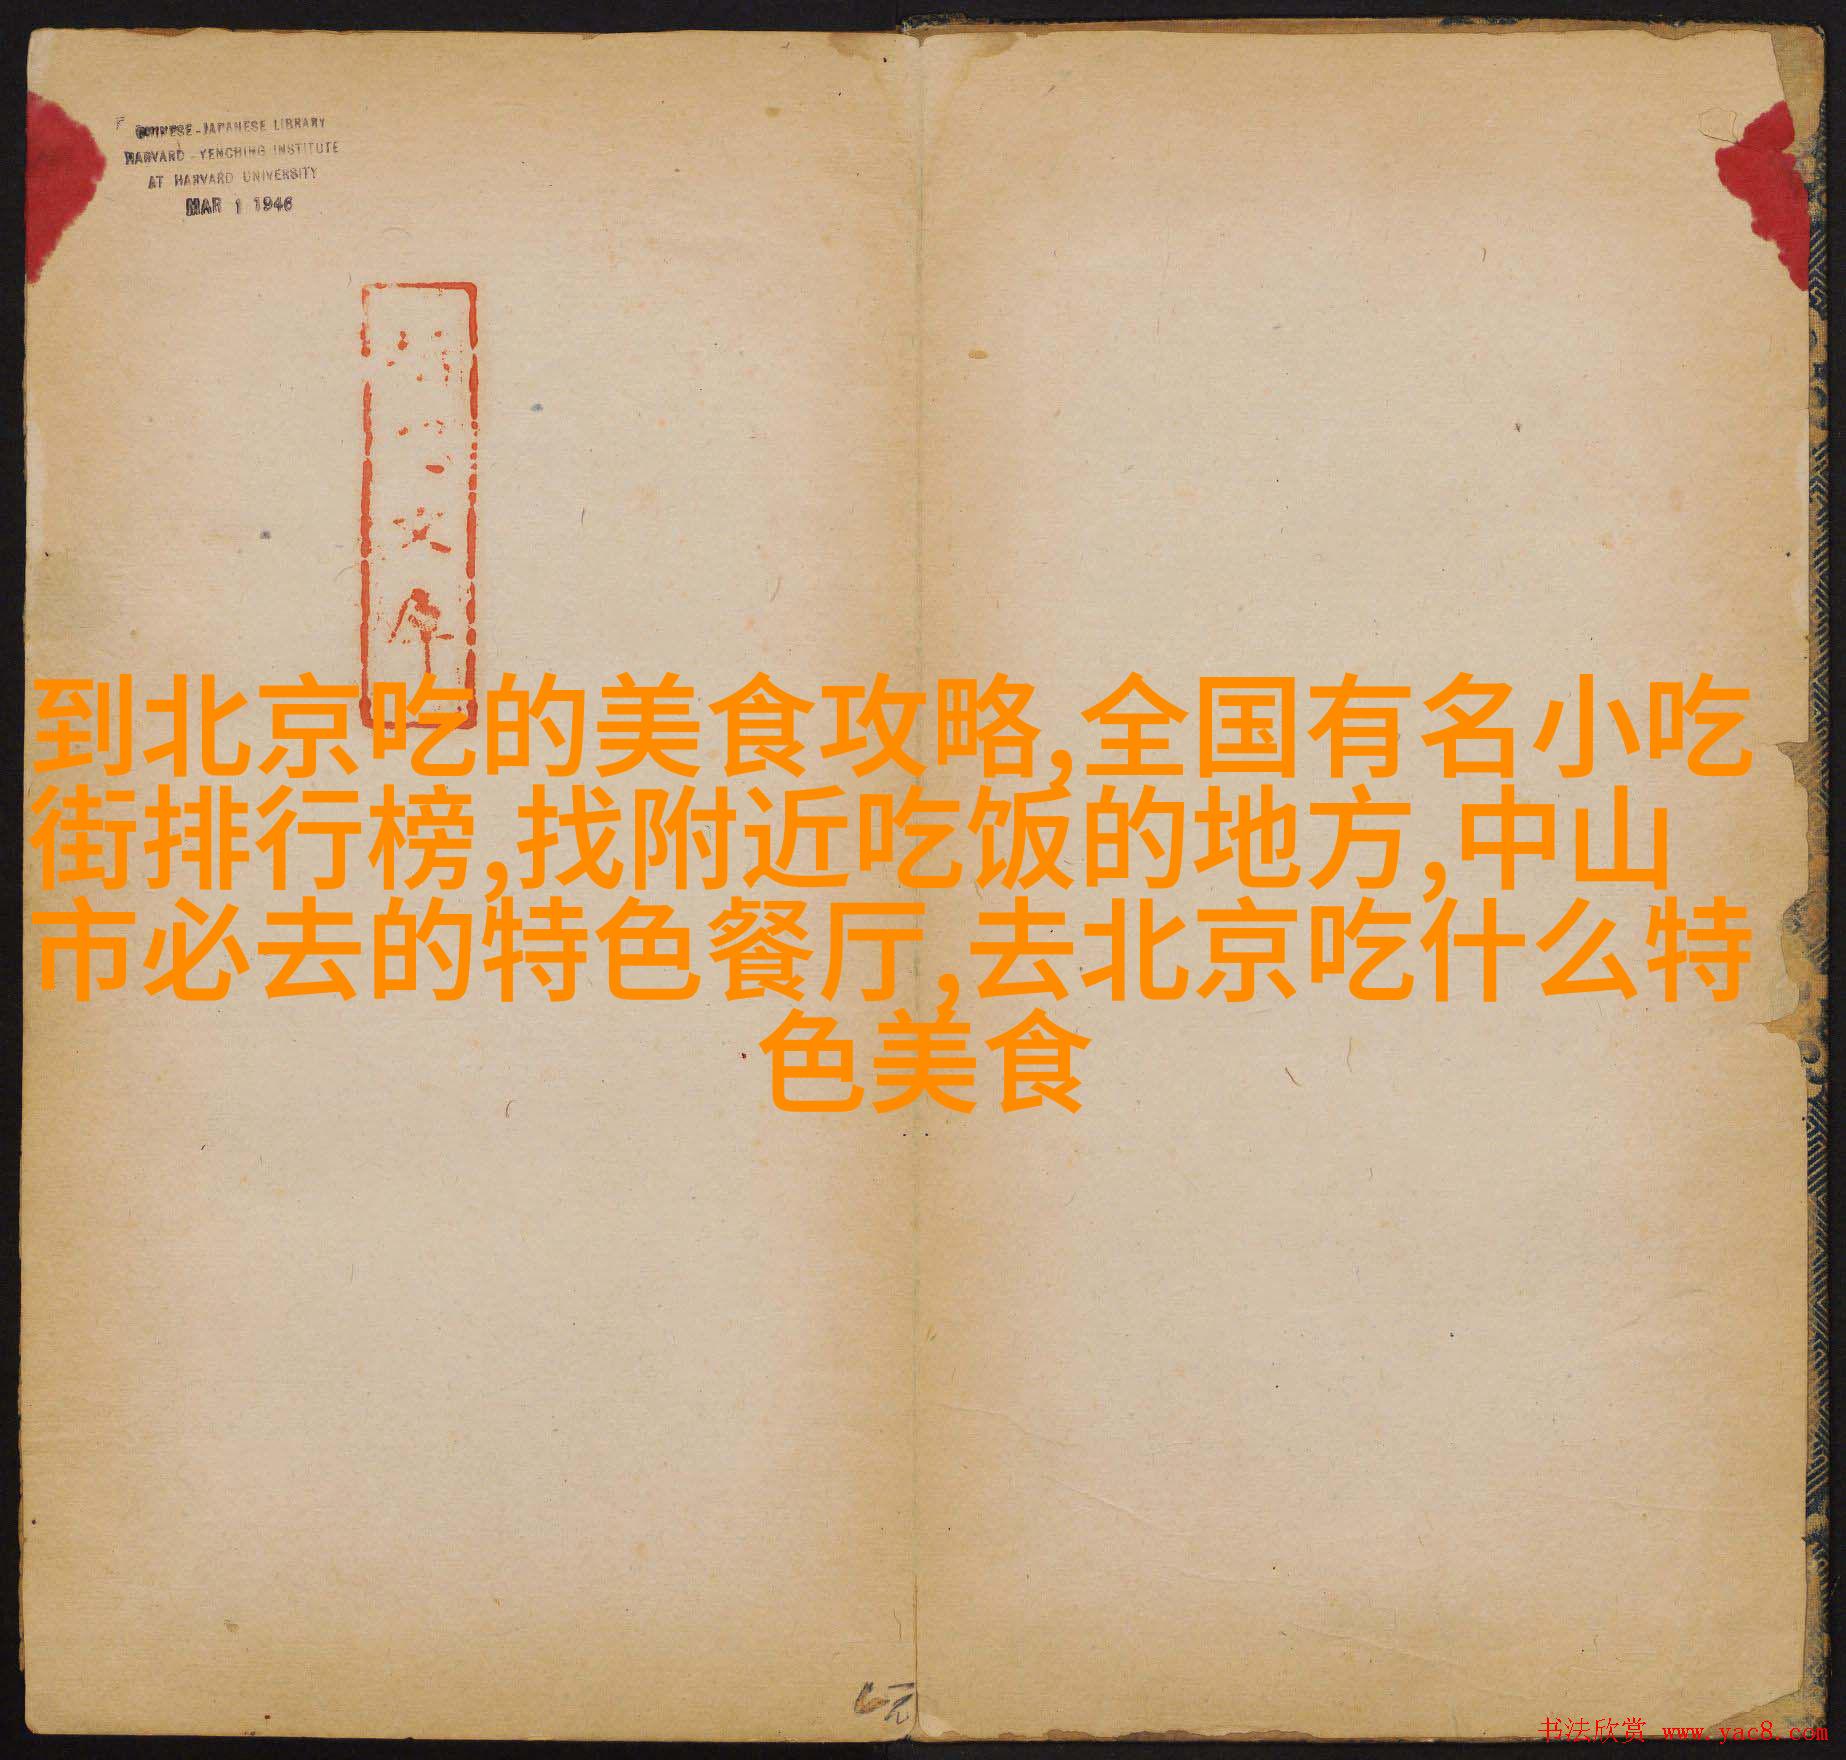 CHINESE-JAPANESE LIBRARY
HARVARD-YENCHING INSTITUTE
AT HARVARD UNIVERSITY
MAR 1 1946
到北京吃的美食攻略,全国有名小吃
街排行榜,找附近吃饭的地方,中山
市必去的特色餐厅,去北京吃什么特
色美食
书法欣赏 www.yac8.com